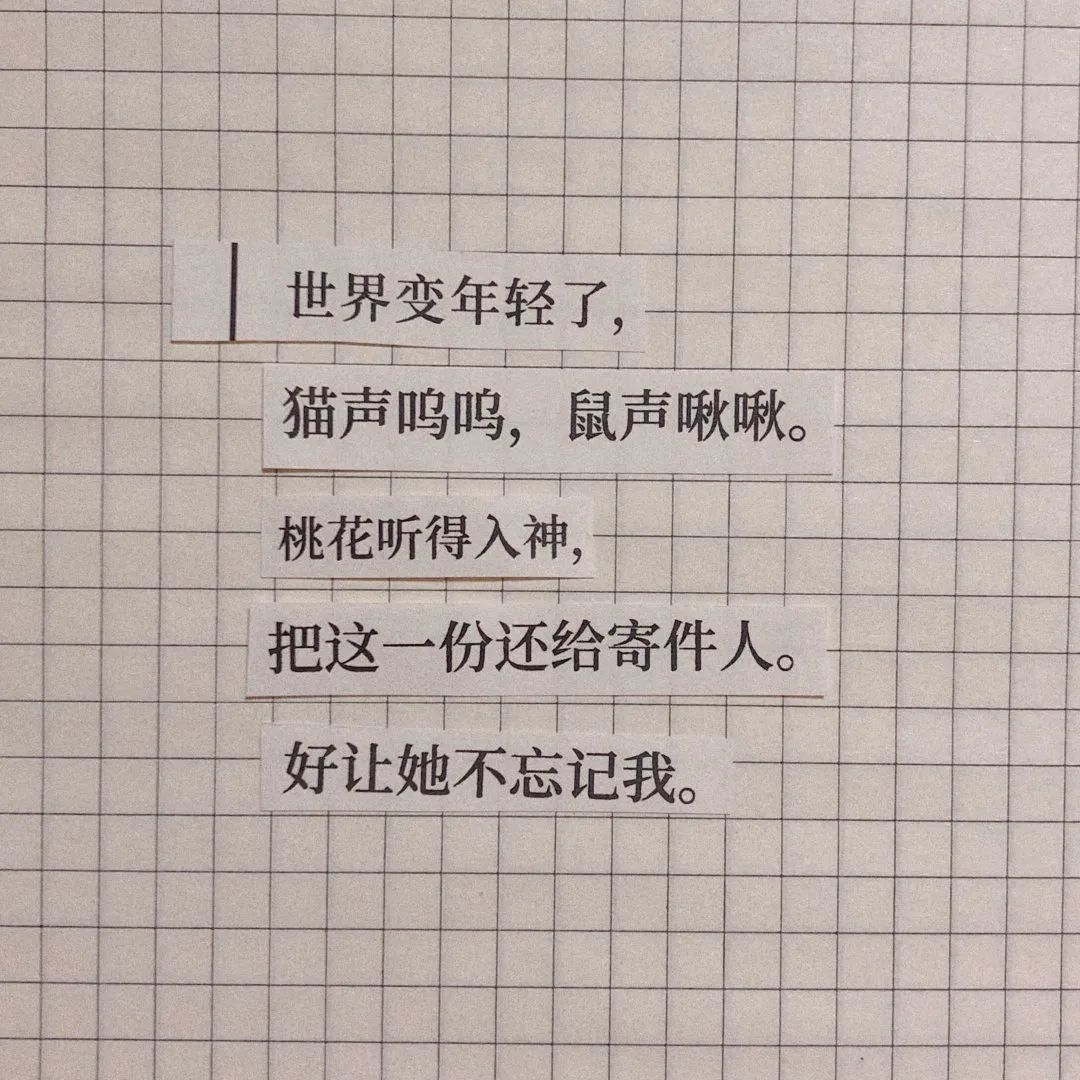 世界变年轻了，
猫声呜呜，鼠声啾啾。
桃花听得入神，
把这一份还给寄件人。
好让她不忘记我。